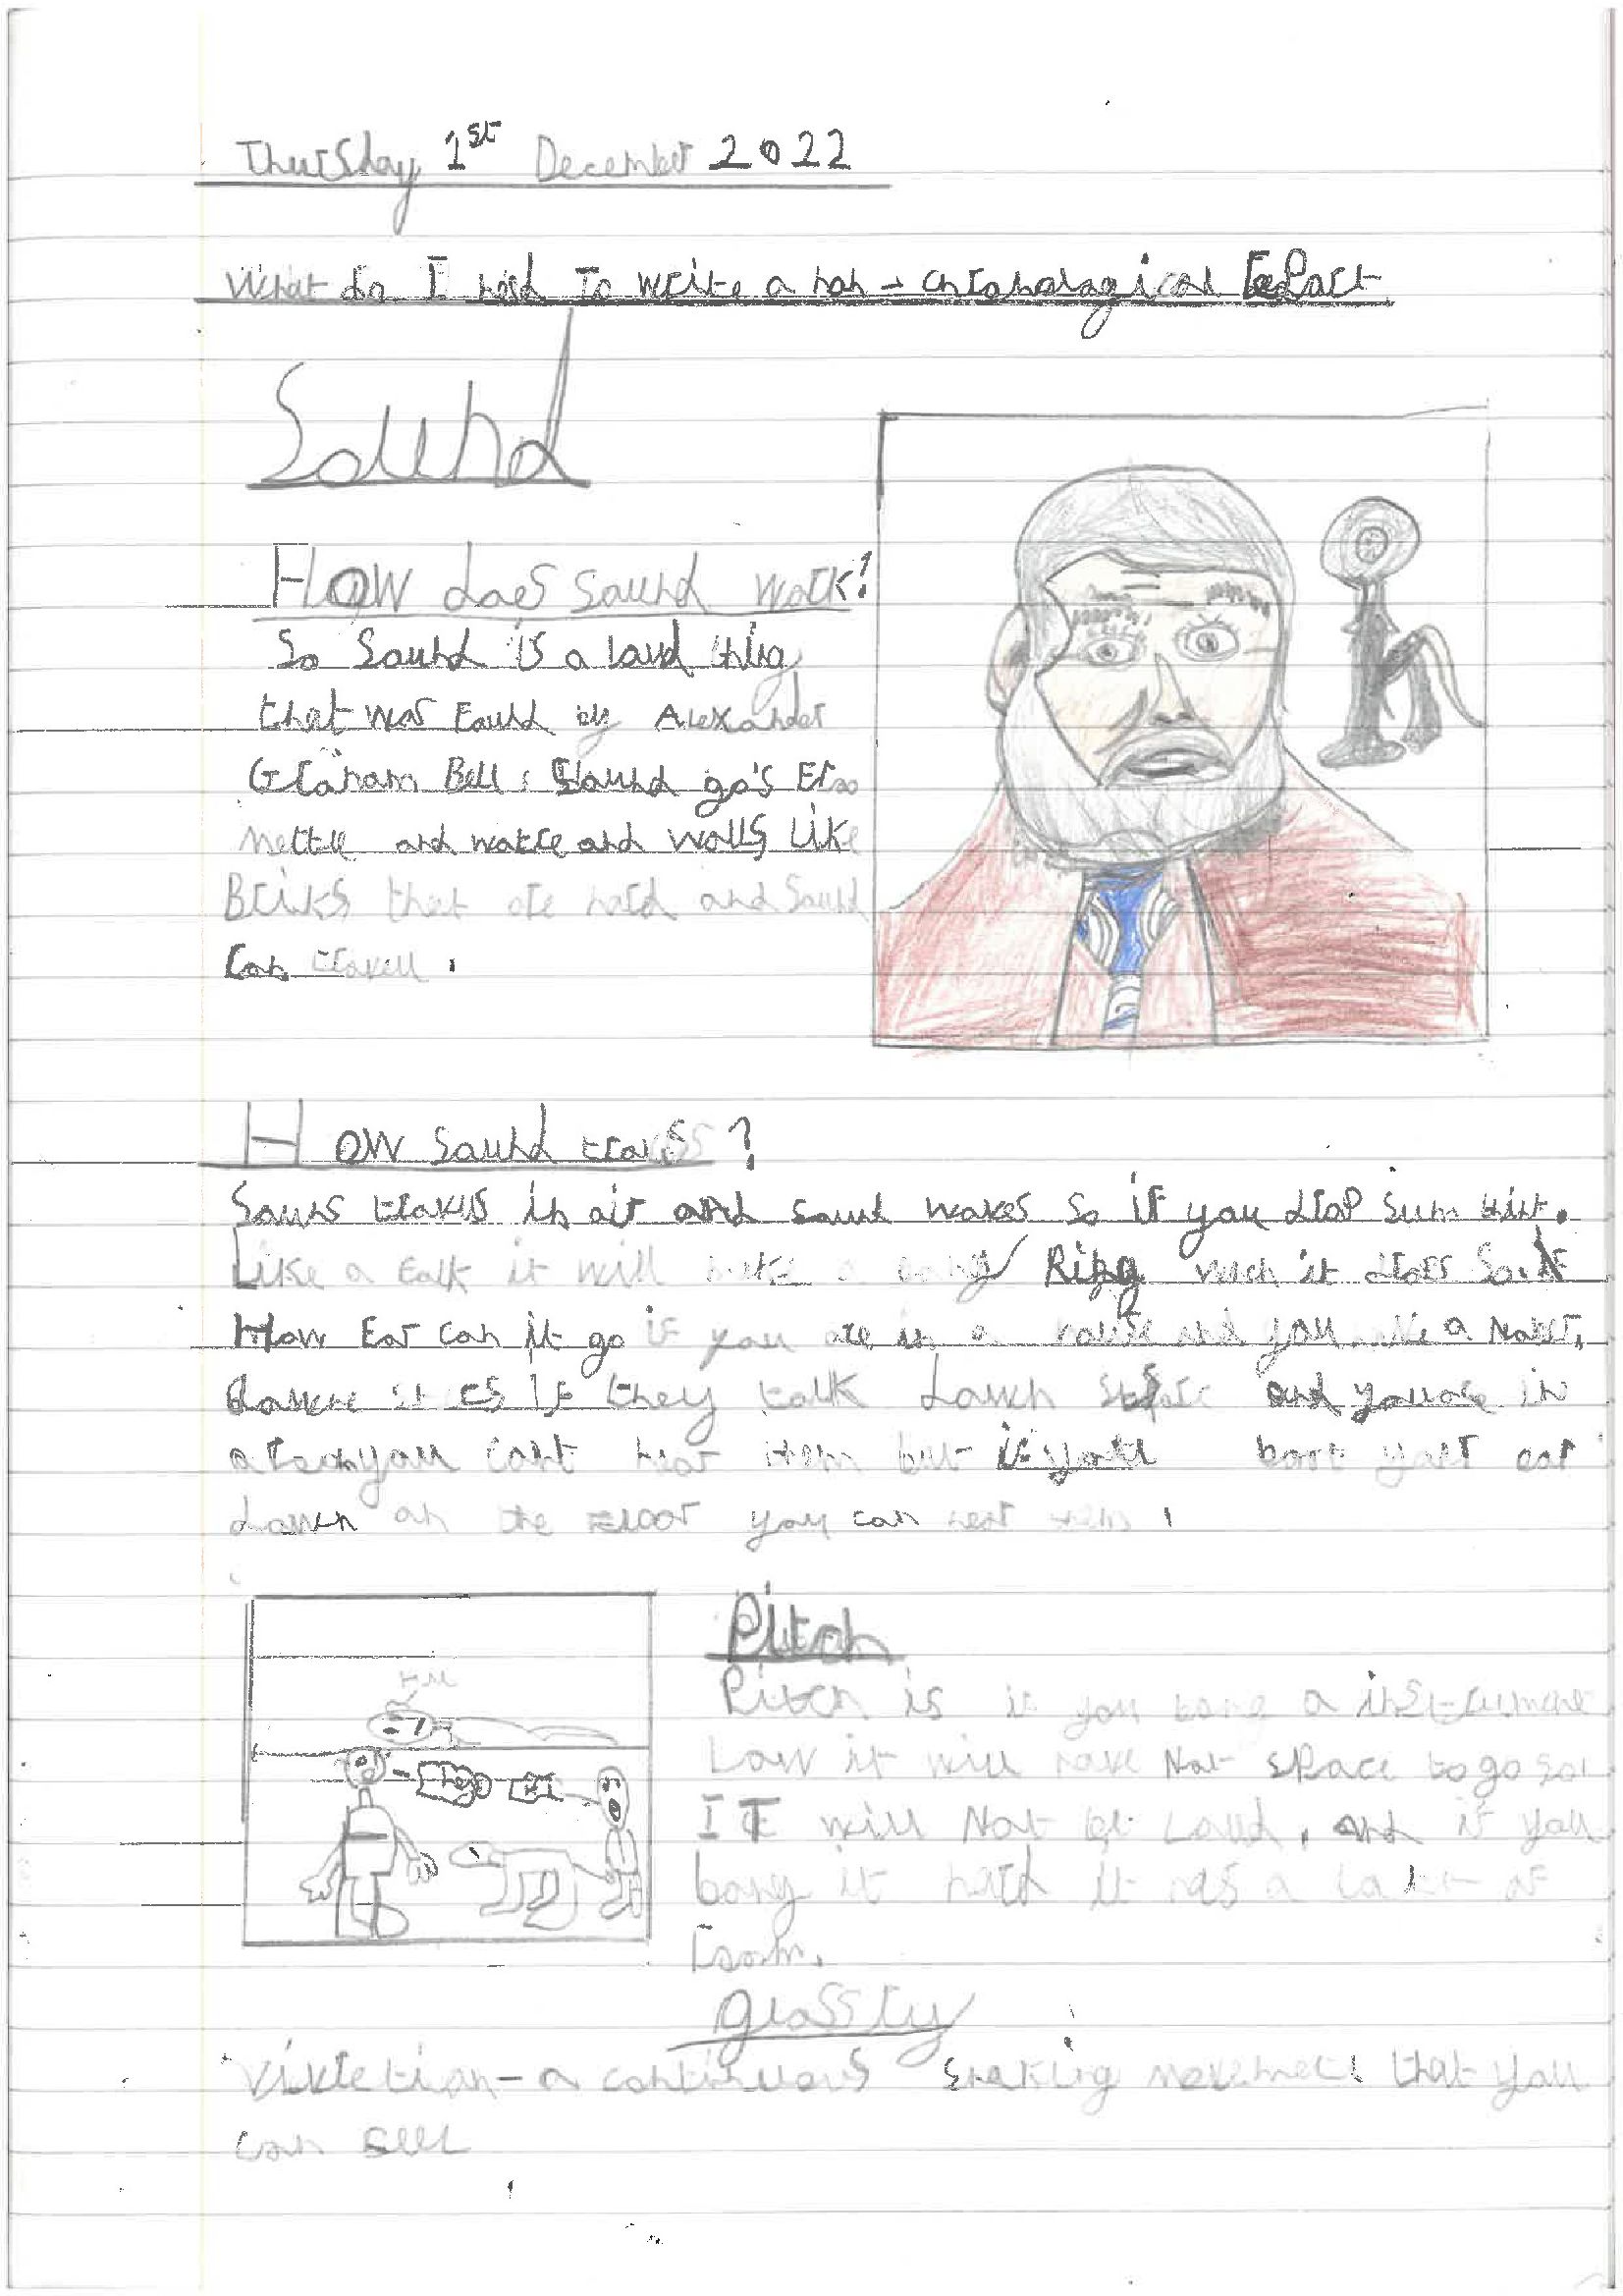 Thursday 1st December 2022
What do I need To write a non-chronological Report
Sound
How does sound work?
So Sound is a loud thig
that was found by Alexander
Graham Bell. Sound go's froo
mettle and watre and walls like
Briks that are hard and Sound
Can travell.
How Sound travls?
Souns travels in air and sound waves so if you drop sum
Like a it will make a bang Ring wech it
How far can it go if you are in a and you a
it if they talk down and you are in
you cant hear them but if your ear
down on the floor you can hear them.
Pitch
Pitch is if you bang a instrument
Low it will have Not space to go so
IT will Not be Loud, and if you
bang it hard it has a of
room.
glossry
- a continuous shaking that you
can feel